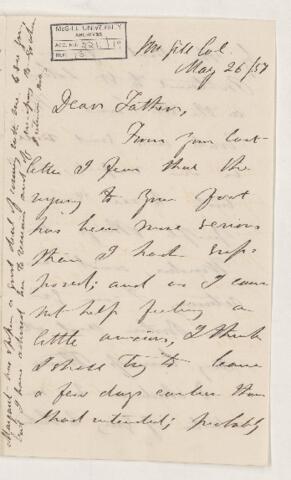 McGILL UNIVERSITY
ARCHIVES
ACC. NO.
REF.
McGill Col.
May 26/57
Dear Father,
From your last
letter I fear that the
injury to your foot
has been more serious
than I had sup-
posed; and as I can
not help feeling a
little anxious, I think
I shall try to leave
a few days earlier than
I had intended; probably
Margaret has spoken a good deal of coming with me to see you
but I have advised her to remain and